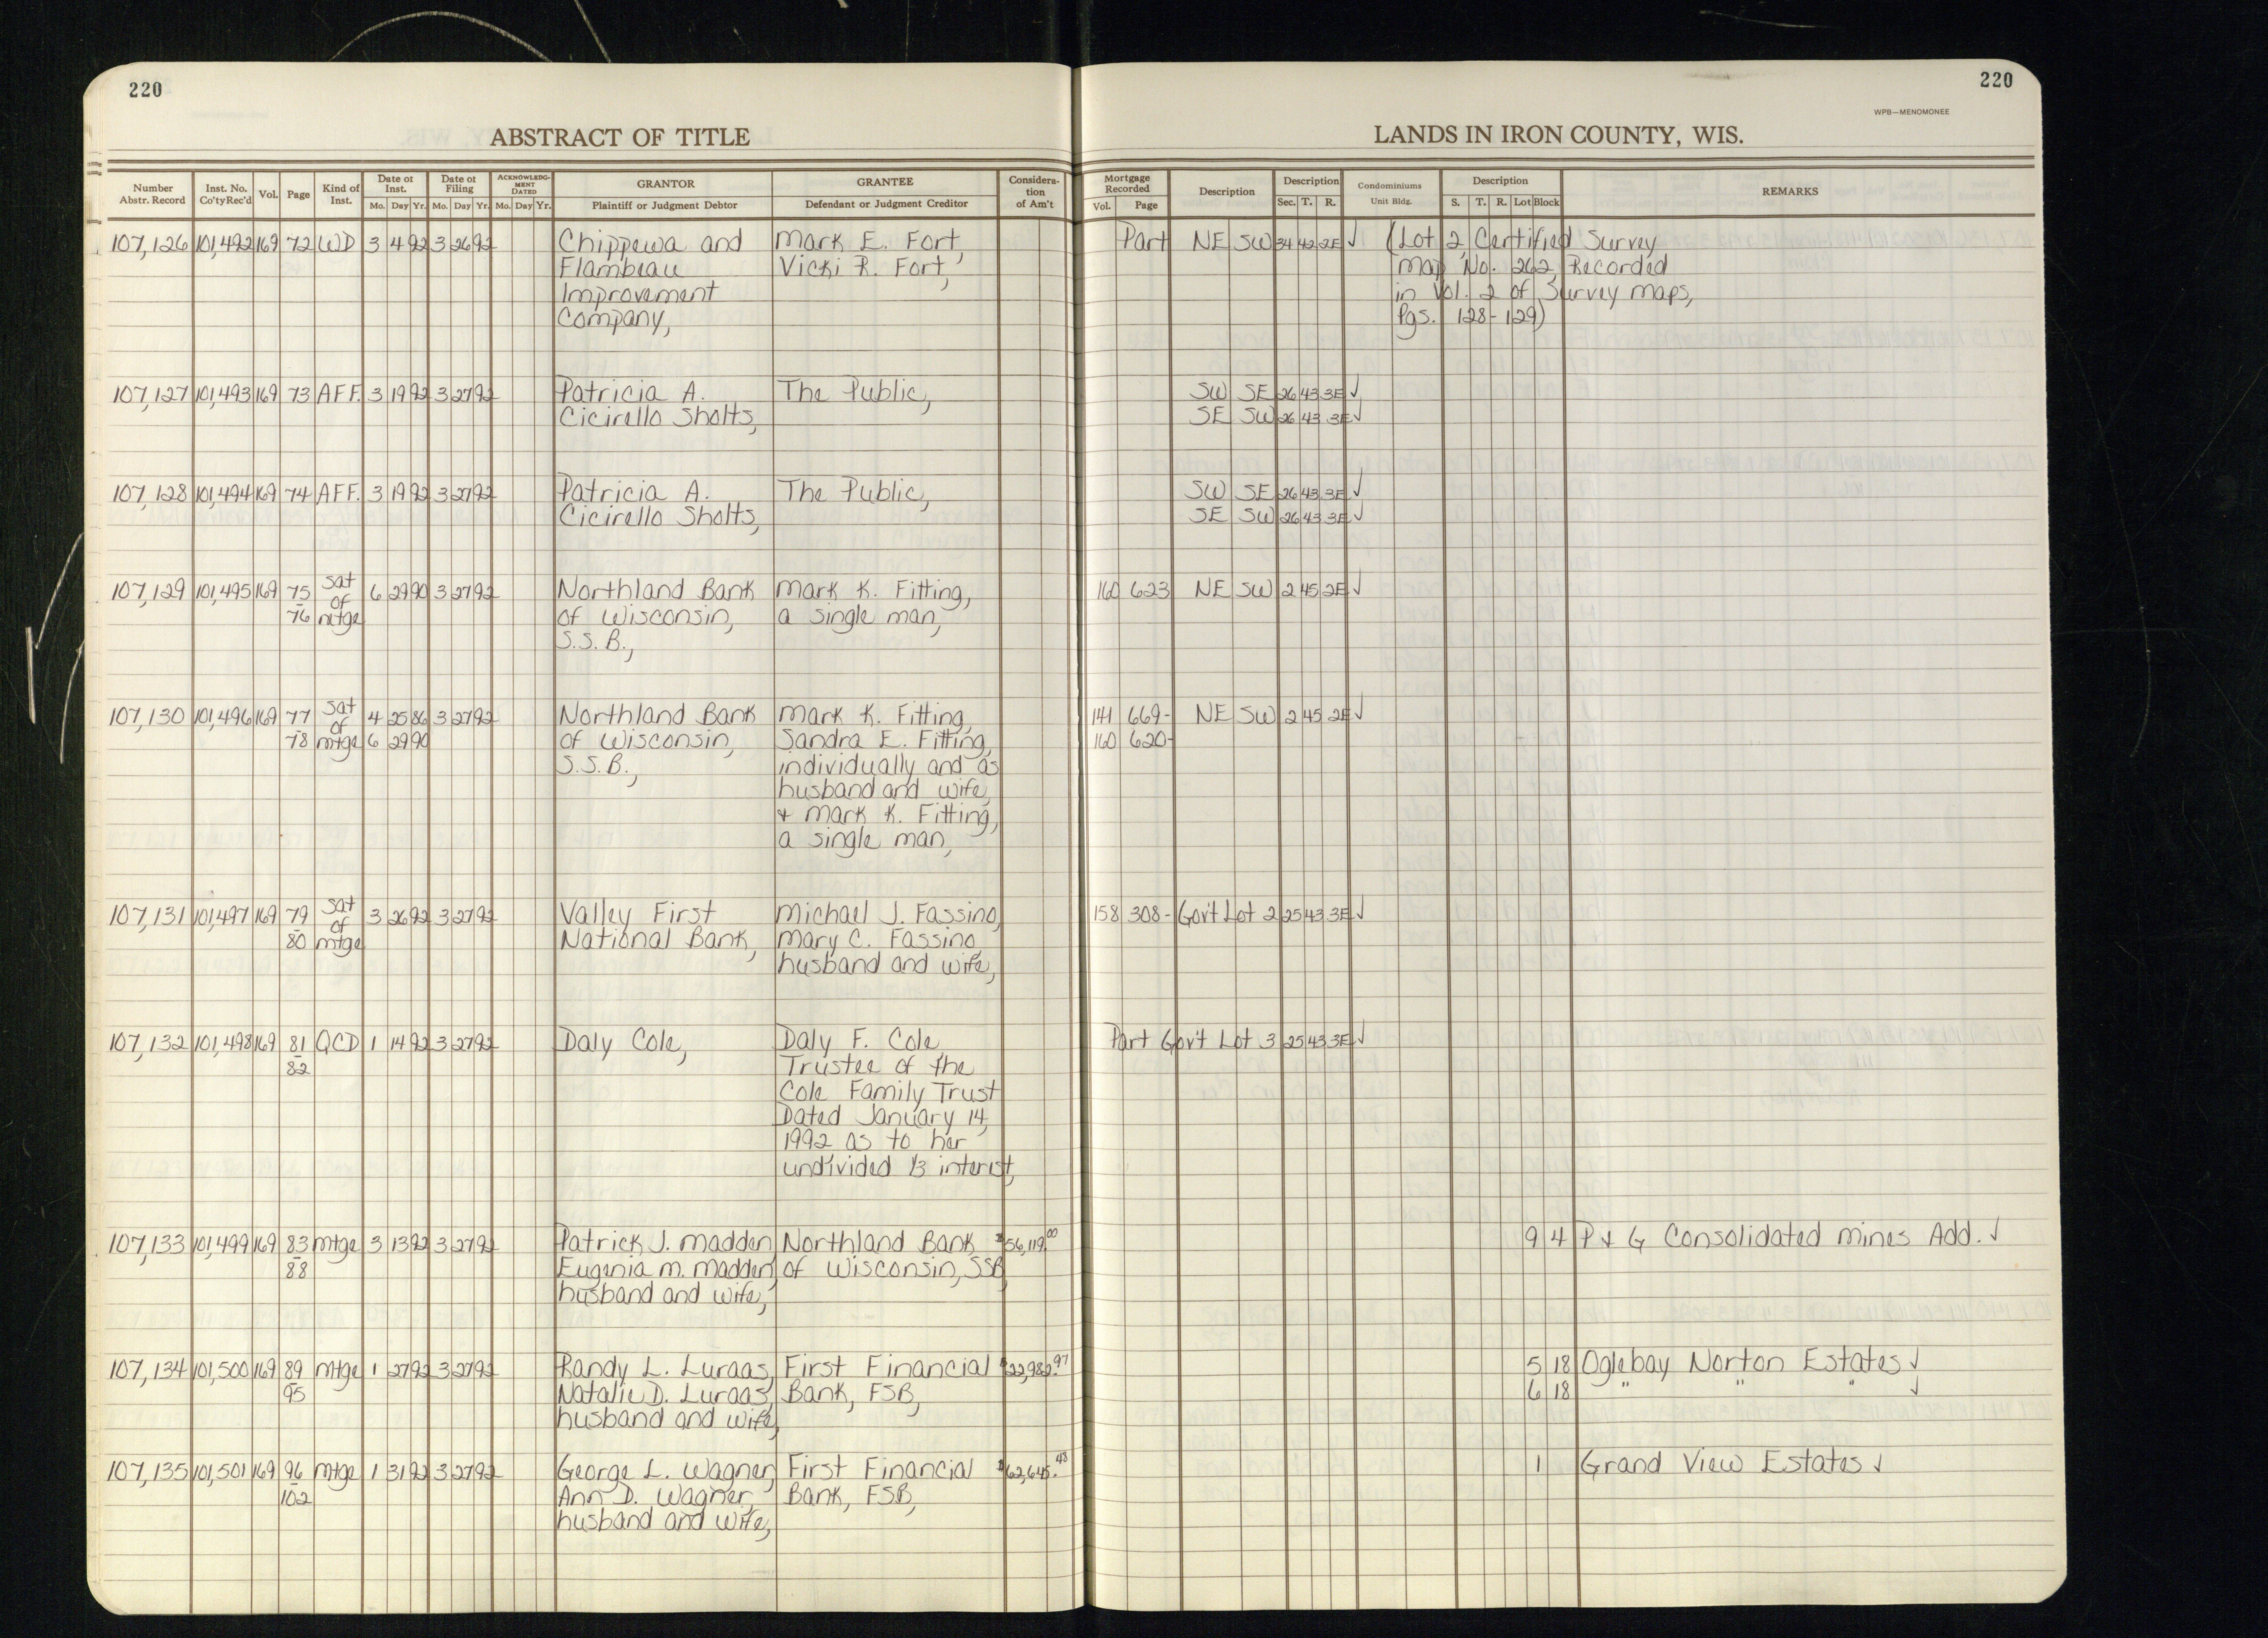 220
220
WPB—MENOMONEE
ABSTRACT OF TITLE
LANDS IN IRON COUNTY, WIS.
Number Abstr. Record | Inst. No. Co'ty Rec'd | Vol. | Page | Kind of Inst. | Date of Inst. Mo. Day Yr. | Date of Filing Mo. Day Yr. | ACKNOWLEDGMENT DATED Mo. Day Yr. | GRANTOR Plaintiff or Judgment Debtor | GRANTEE Defendant or Judgment Creditor | Consideration of Am't | Mortgage Recorded Vol. Page | Description | Description Sec. T. R. | Condominiums Unit Bldg. | Description S. T. R. Lot Block | REMARKS
107,126 101,492 169 72 WD 3 4 92 3 26 92 Chippewa and Mark E. Fort, Part NE SW 34 42 2E ✓ (Lot 2, Certified Survey
Flambeau Vicki R. Fort, Map No. 262, Recorded
Improvement in Vol. 2 of Survey Maps,
Company, Pgs. 128-129)
107,127 101,493 169 73 AFF. 3 19 92 3 27 92 Patricia A. The Public, SW SE 26 43 3E ✓
Cicirello Sholts, SE SW 26 43 3E ✓
107,128 101,494 169 74 AFF. 3 19 92 3 27 92 Patricia A. The Public, SW SE 26 43 3E ✓
Cicirello Sholts, SE SW 26 43 3E ✓
107,129 101,495 169 75 Sat 6 29 90 3 27 92 Northland Bank Mark K. Fitting, 160 623 NE SW 2 45 2E ✓
- of of Wisconsin, a single man,
76 mtge S.S.B.,
107,130 101,496 169 77 Sat 4 25 86 3 27 92 Northland Bank Mark K. Fitting, 141 669- NE SW 2 45 2E ✓
- of
78 mtge 6 29 90 of Wisconsin, Sandra E. Fitting, 160 620-
S.S.B., individually and as
husband and wife,
+ Mark K. Fitting,
a single man,
107,131 101,497 169 79 Sat 3 26 92 3 27 92 Valley First Michael J. Fassino, 158 308- Gov't Lot 2 25 43 3E ✓
- of
80 mtge National Bank, Mary C. Fassino,
husband and wife,
107,132 101,498 169 81 QCD 1 14 92 3 27 92 Daly Cole, Daly F. Cole Part Gov't Lot 3 25 43 3E ✓
82 Trustee of the
Cole Family Trust
Dated January 14,
1992 as to her
undivided 1/3 interest,
107,133 101,499 169 83 mtge 3 13 92 3 27 92 Patrick J. Madden, Northland Bank $56,119.00 9 4 P + G Consolidated Mines Add. ✓
88 Eugenia M. Madden, of Wisconsin, SSB,
husband and wife,
107,134 101,500 169 89 mtge 1 27 92 3 27 92 Randy L. Luraas, First Financial $22,982.97 5 18 Oglebay Norton Estates ✓
95 Natalie D. Luraas, Bank, FSB, 6 18 " " " ✓
husband and wife,
107,135 101,501 169 96 mtge 1 31 92 3 27 92 George L. Wagner, First Financial $62,645.48 1 Grand View Estates ✓
102 Ann D. Wagner, Bank, FSB,
husband and wife,